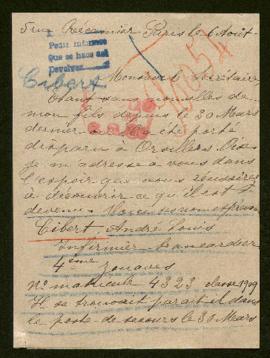 5 rue Récamier Paris le 6 Août
Pedir informes
Que se hace así
Devolver
Gibert
Monsieur le Secrétaire
Etant sans nouvelles de
mon fils depuis le 30 Mars
dernier été porté
disparu à Orvillers Oise
je m'adresse à vous dans
l'espoir que vous réussirez
à découvrir ce qu'il est
devenu.
Gibert André Louis
Infirmier Brancardier
4eme Zouaves
No matricule 4323 classe 1909
Il se trouvait parait il dans
le poste de secours le 30 Mars